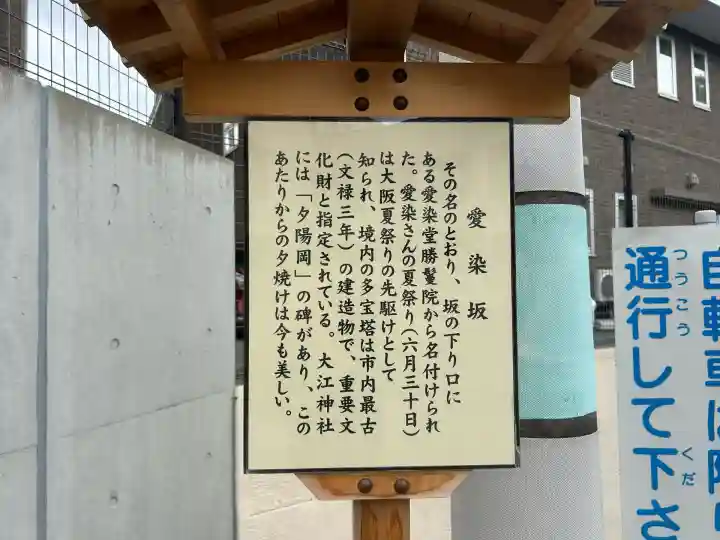 愛染坂
その名のとおり、坂の下り口に
ある愛染堂勝鬘院から名付けられ
た。愛染さんの夏祭り(六月三十日)
は大阪夏祭りの先駆けとして
知られ、境内の多宝塔は市内最古
(文禄三年)の建造物で、重要文
化財と指定されている。大江神社
には「夕陽岡」の碑があり、この
あたりからの夕焼けは今も美しい。
自転車は降り
通行して下さ
つうこう
くだ